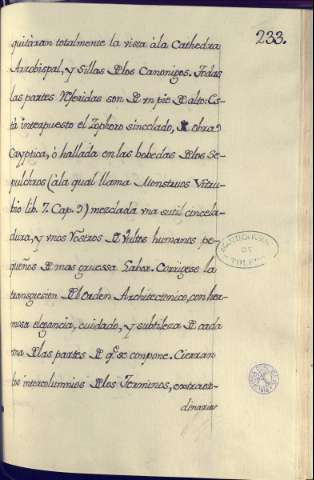 233.
quitàran totalmente la vista àla Cathedra
Arzobispal, y Sillas delos Canonigos. Todas
las partes referidas son de vn pie de alto: Es-
tà interpuesto el Zophoro sincelado, de obra
Cryptica, ò hallada en las bobedas delos Se-
pulchros (àla qual llama Monstruos Vitru-
bio lib. 7. Cap. ) mezclada vna sutil cincela-
dura, y vnos rostros de vultos humanos pe-
queños de mas gruessa labor. Corrigese la
transgresion del orden Architectonico, con her-
mosa elegancia, cuidado, y subtileza de cada
vna delas partes de qe. se compone. Cierran
los intercolumnios delos Terminos, extraor-
dinarias
TOLEDO